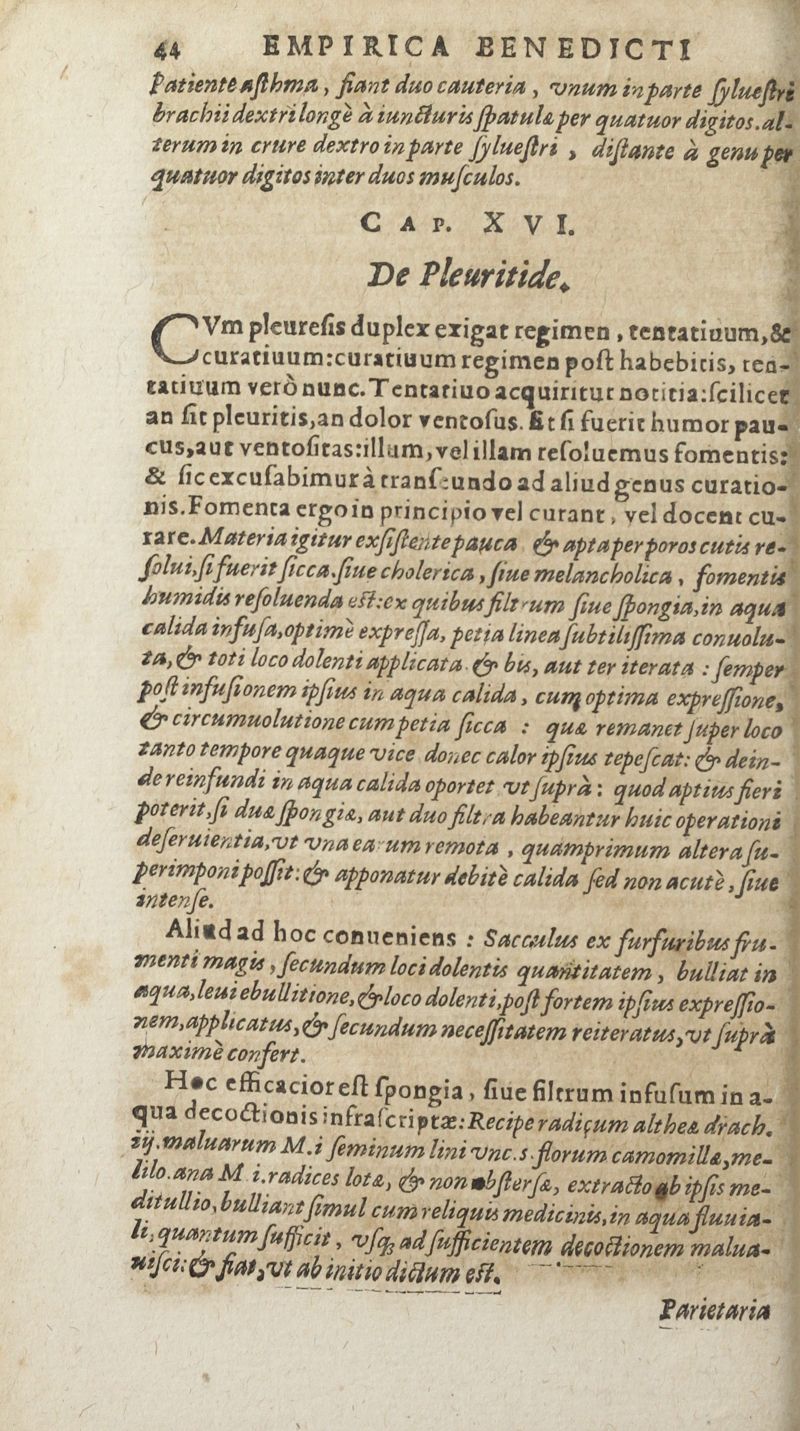 44 EMPIRICA BENEDICTI
Patiente aſthma, fiant duo cauteria, vnum in parte ſylueſtri
brachii dextri longè à iuncturis ſpatulæ per quatuor digitos. al-
terum in crure dextro in parte ſylueſtri, diſtante à genu per
quatuor digitos inter duos muſculos.
CAP. XVI.
De Pleuritide.
CVm pleureſis duplex exigat regimen, tentatiuum, &
curatiuum: curatiuum regimen poſt habebitis, ten-
tatiuum verò nunc. Tentatiuo acquiritur notitia: ſcilicet
an ſit pleuritis, an dolor ventoſus. Et ſi fuerit humor pau-
cus, aut ventoſitas: illum, vel illam reſoluemus fomentis:
& ſic excuſabimur à tranſeundo ad aliud genus curatio-
nis. Fomenta ergo in principio vel curant, vel docent cu-
rare. Materia igitur exſiſtente pauca & apta per poros cutis re-
ſolui, ſi fuerit ſicca ſiue cholerica, ſiue melancholica, fomentis
humidis reſoluenda eſt: ex quibus filtrum ſiue ſpongia, in aqua
calida infuſa, optimè expreſſa, petia linea ſubtiliſſima conuolu-
ta, & toti loco dolenti applicata. & bis, aut ter iterata: ſemper
poſt infuſionem ipſius in aqua calida, cumq; optima expreſſione,
& circumuolutione cum petia ſicca: quæ remanet ſuper loco
tanto tempore quaque vice donec calor ipſius tepeſcat: & dein-
de reinfundi in aqua calida oportet vt ſuprà: quod aptius fieri
poterit, ſi duæ ſpongiæ, aut duo filtra habeantur huic operationi
deſeruientia, vt vna earum remota, quàmprimum altera ſu-
perimponi poſſit: & apponatur debitè calida ſed non acutè, ſiue
intenſe.
Aliud ad hoc conueniens: Sacculus ex furfuribus fru-
menti magis, ſecundum loci dolentis quantitatem, bulliat in
aqua, leui ebullitione, & loco dolenti, poſt fortem ipſius expreſſio-
nem, applicatus, & ſecundum neceſſitatem reiteratus, vt ſuprà
maximè confert.
Hoc efficacior eſt ſpongia, ſiue filtrum infuſum in a-
qua decoctionis infraſcriptæ: Recipe radicum altheæ drach.
iij. maluarum M.i ſeminum lini vnc. s. florum camomillæ, me-
lilo. ana M i. radices lotæ, & non abſterſæ, extracto ab ipſis me-
ditullio, bulliant ſimul cum reliquis medicinis, in aqua fluuia-
li, quantum ſufficit, vſq; ad ſufficientem decoctionem malua-
uiſci: & fiat, vt ab initio dictum eſt.
Parietaria